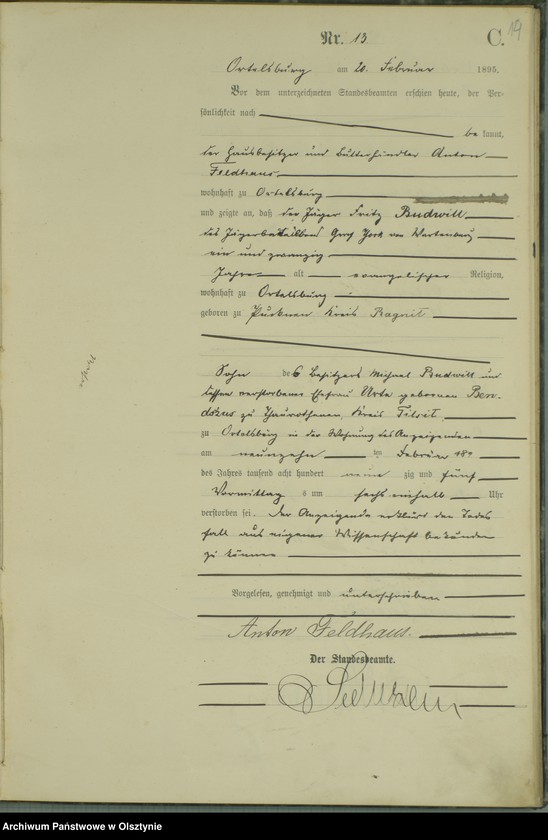 Nr. 13
C.
14
Ortelsburg am 20. Februar 1895.
Vor dem unterzeichneten Standesbeamten erschien heute, der Per-
sönlichkeit nach
be kannt,
der Hausbesitzer und Anton
Feldhaus,
wohnhaft zu Ortelsburg
und zeigte an, daß der Jäger Fritz Budwill
des Jägerbataillons Graf York von Wartenburg
ein und zwanzig
Jahre alt evangelischer Religion,
wohnhaft zu Ortelsburg
geboren zu Kreis Ragnit
Sohn des Besitzers Michael Budwill und
dessen verstorbener Ehefrau Urte geborenen Ben-
zu Kreis Tilsit
zu Ortelsburg in der Wohnung des Anzeigenden
am neunzehn ten Februar
des Jahres tausend acht hundert neun zig und fünf
Vormittag s um sechs einhalb Uhr
verstorben sei. Der Anzeigende erklärt den Todes
fall aus eigener Wissenschaft bekunden
zu können
Vorgelesen, genehmigt und unterschrieben
Anton Feldhaus.
Der Standesbeamte.
Archiwum Państwowe w Olsztynie